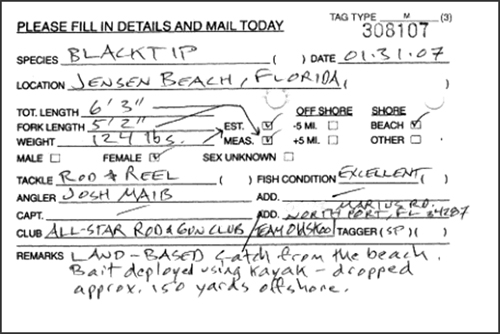 PLEASE FILL IN DETAILS AND MAIL TODAY TAG TYPE M (3)
308107
SPECIES BLACKTIP ( ) DATE 01.31.07
LOCATION JENSEN BEACH, FLORIDA ( )
TOT. LENGTH 6' 3" OFF SHORE SHORE
FORK LENGTH 5' 2" EST. -5 MI. BEACH
WEIGHT 124 lbs. MEAS. +5 MI. OTHER
MALE FEMALE SEX UNKNOWN
TACKLE ROD & REEL ( ) FISH CONDITION EXCELLENT ( )
ANGLER JOSH MAIB ADD. MARIUS RD.
CAPT. ADD. NORTH PORT, FL 34287
CLUB ALL-STAR ROD & GUN CLUB / TEAM TAGGER (SP) ( )
REMARKS LAND-BASED Catch from the beach.
Bait deployed using kayak - dropped
approx. 150 yards offshore.